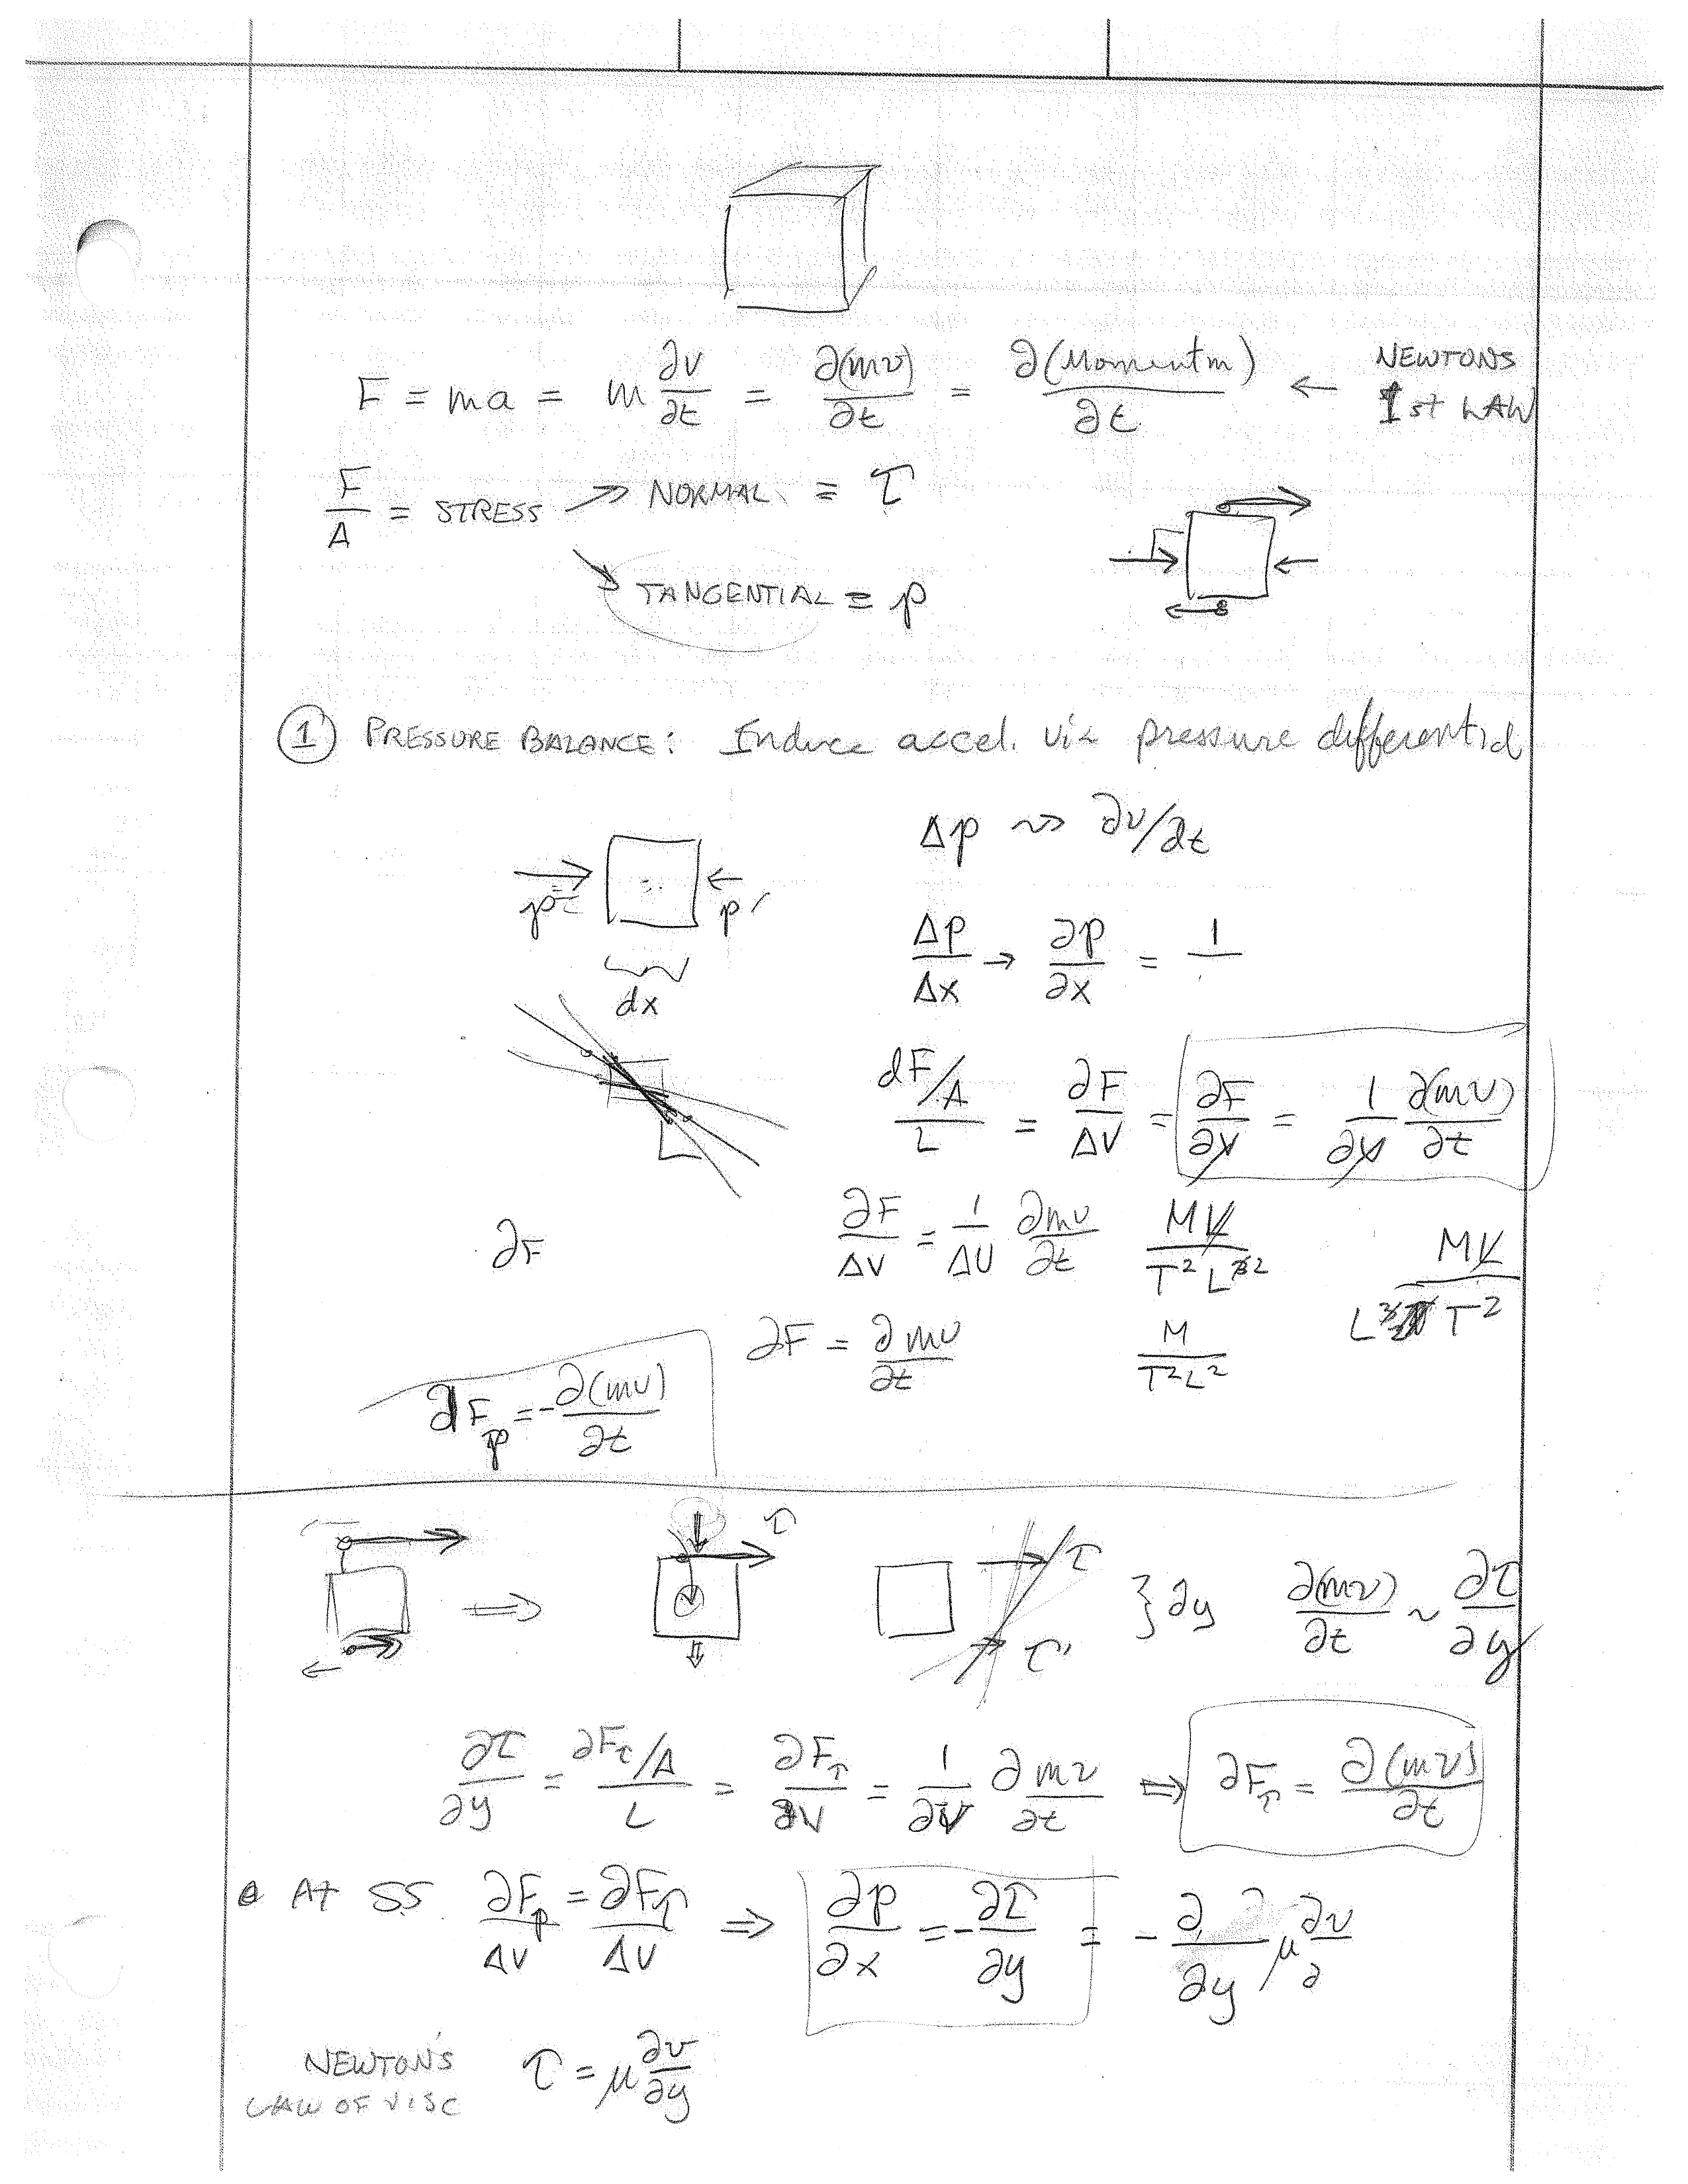 F = ma = m ∂v/∂t = ∂(mv)/∂t = ∂(Momentm)/∂t ← NEWTONS 1st LAW
F/A = STRESS → NORMAL = τ
↘ TANGENTIAL = p
① PRESSURE BALANCE: Induce accel. via pressure differential
Δp ⇝ ∂v/∂t
p p'
Δp/Δx → ∂p/∂x = 1/
dx
dF/A / L = ∂F/ΔV = ∂F/∂V = 1/∂V ∂(mv)/∂t
∂F
∂F/ΔV = 1/ΔV ∂mv/∂t ML/T² L³ 2 ML/L³ T²
∂F = ∂mv/∂t M/T²L²
∂F_p = -∂(mv)/∂t
τ τ τ' } ∂y ∂(mv)/∂t ~ ∂τ/∂y
∂τ/∂y = ∂F_τ/A / L = ∂F_τ/∂V = 1/∂V ∂mv/∂t ⇒ ∂F_τ = ∂(mv)/∂t
• At SS ∂F_p/ΔV = ∂F_τ/ΔV ⇒ ∂p/∂x = -∂τ/∂y = -∂/∂y μ ∂v/∂
NEWTON'S LAW OF VISC τ = μ ∂v/∂y